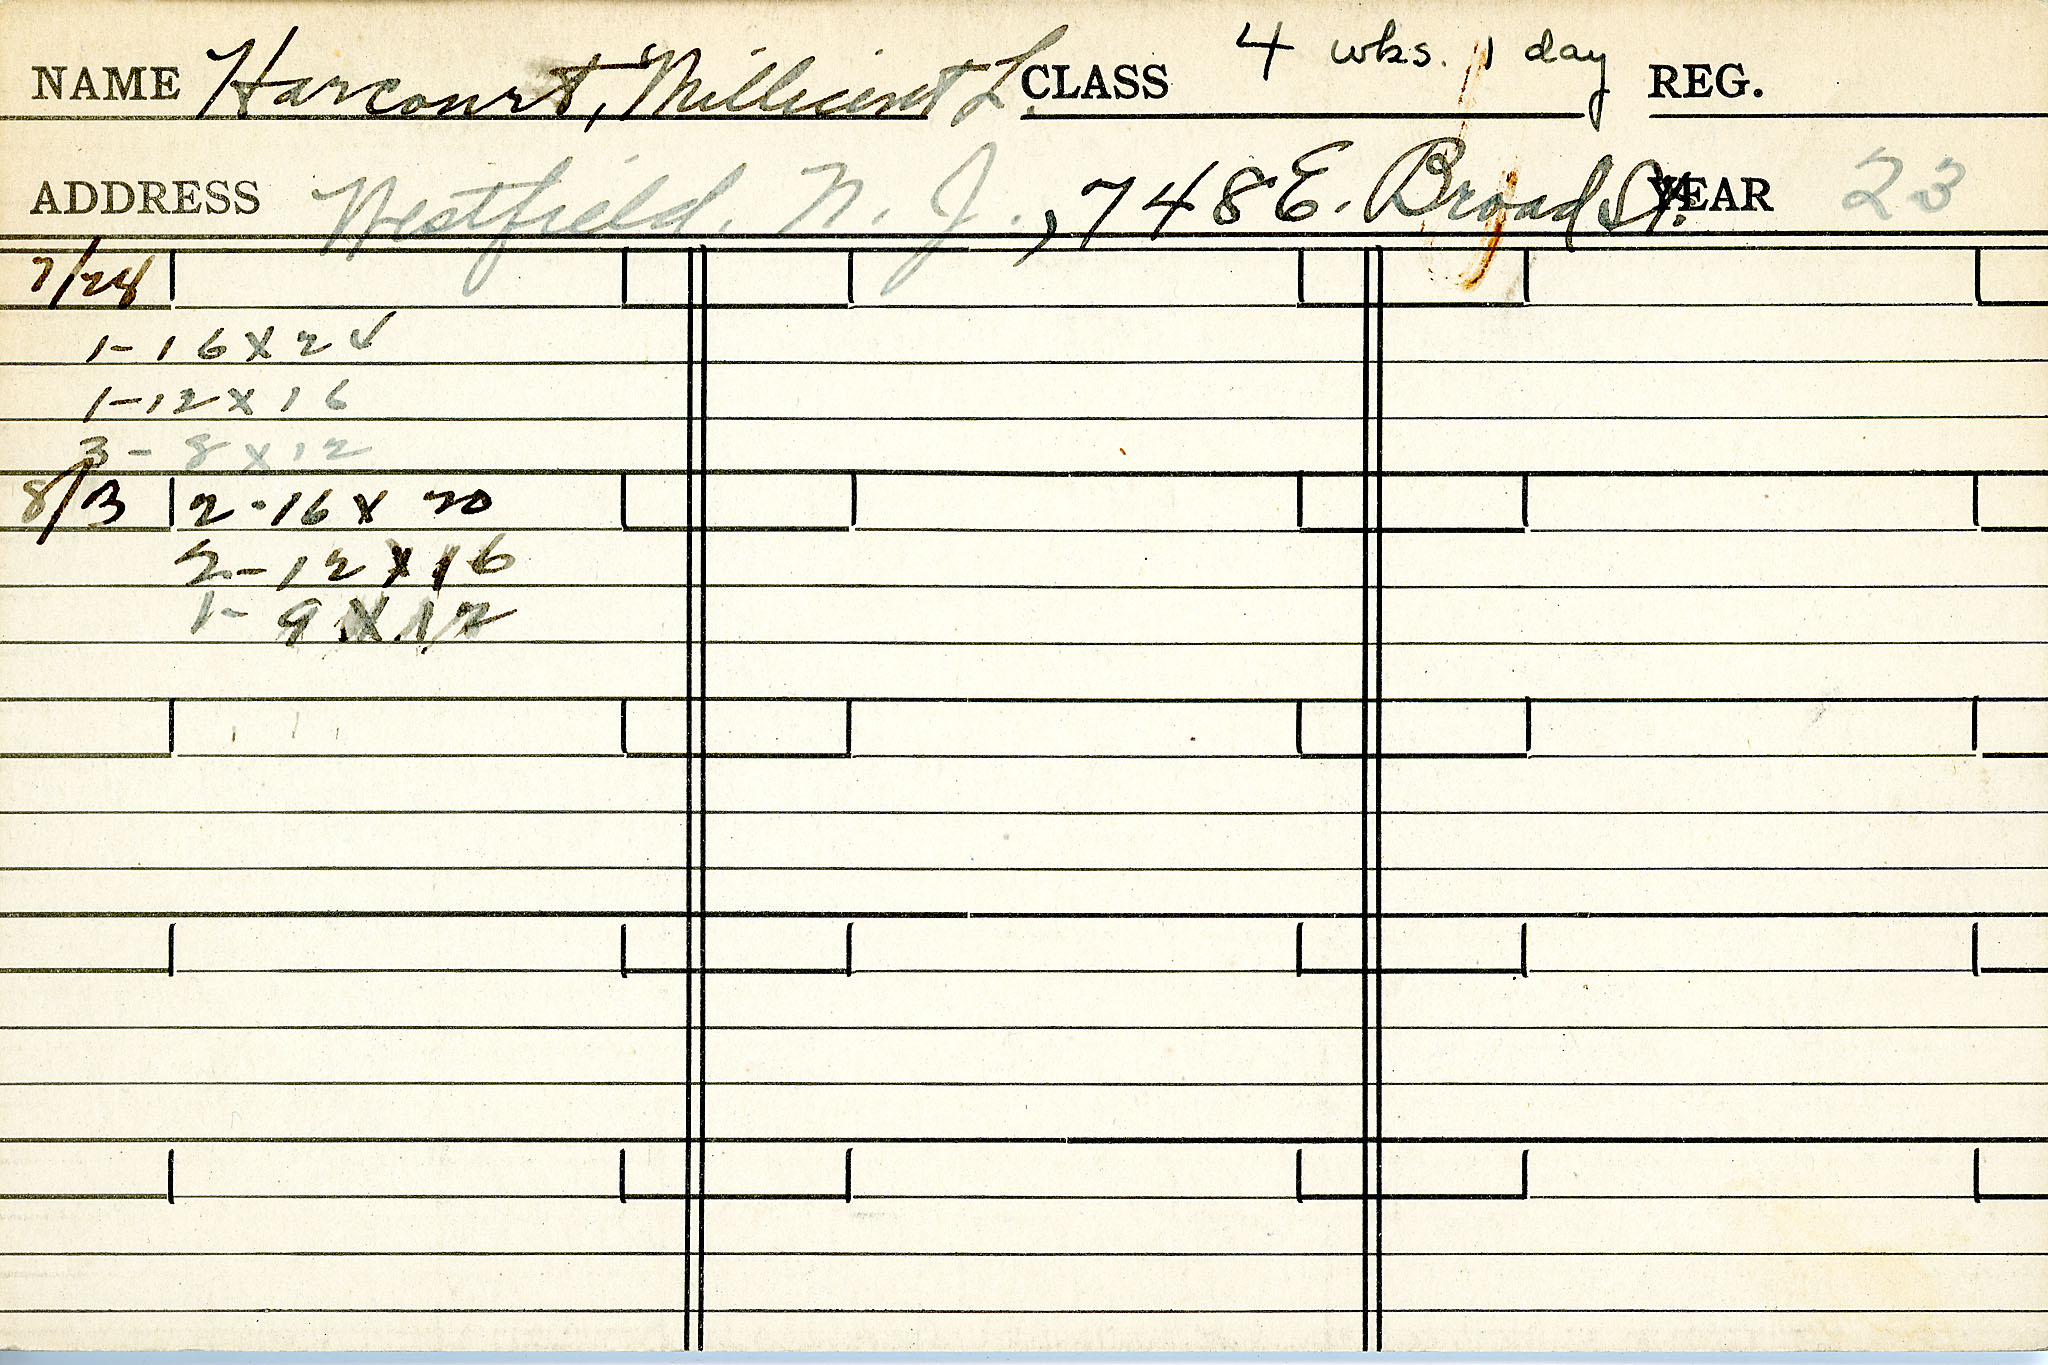 NAME Harcourt, Millicent L. CLASS 4 wks. 1 day REG.
ADDRESS Westfield, N. J., 748 E. Broad St. YEAR 23
7/28
1-16x24
1-12x16
3-8x12
8/3 2-16x20
2-12x16
1-9x12